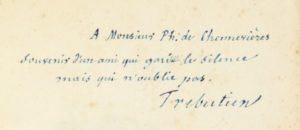 A Monsieur Ph. de Chennevières
souvenir d'un ami qui garde le silence
mais qui n'oublie pas.
Trebutien